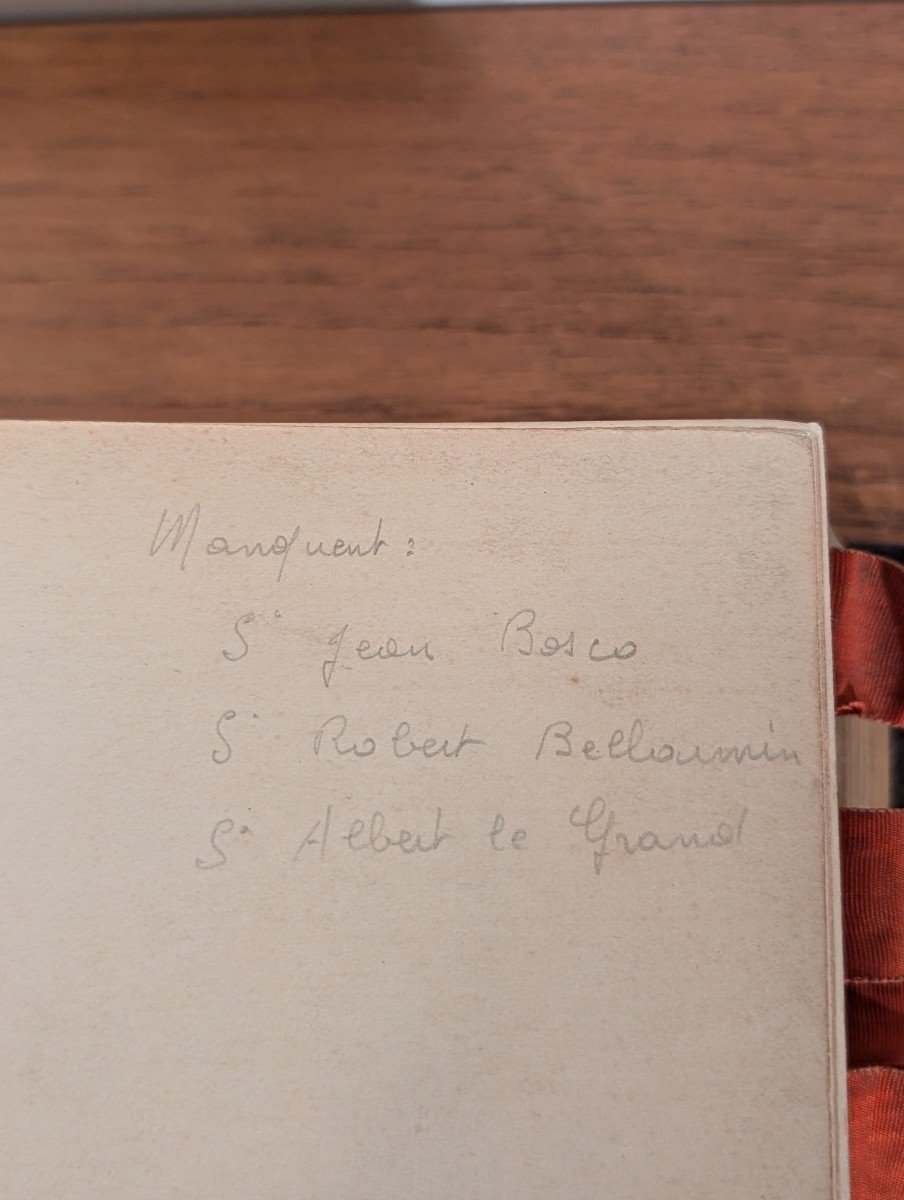 Manquent :
St Jean Bosco
St Robert Bellarmin
St Albert le Grand